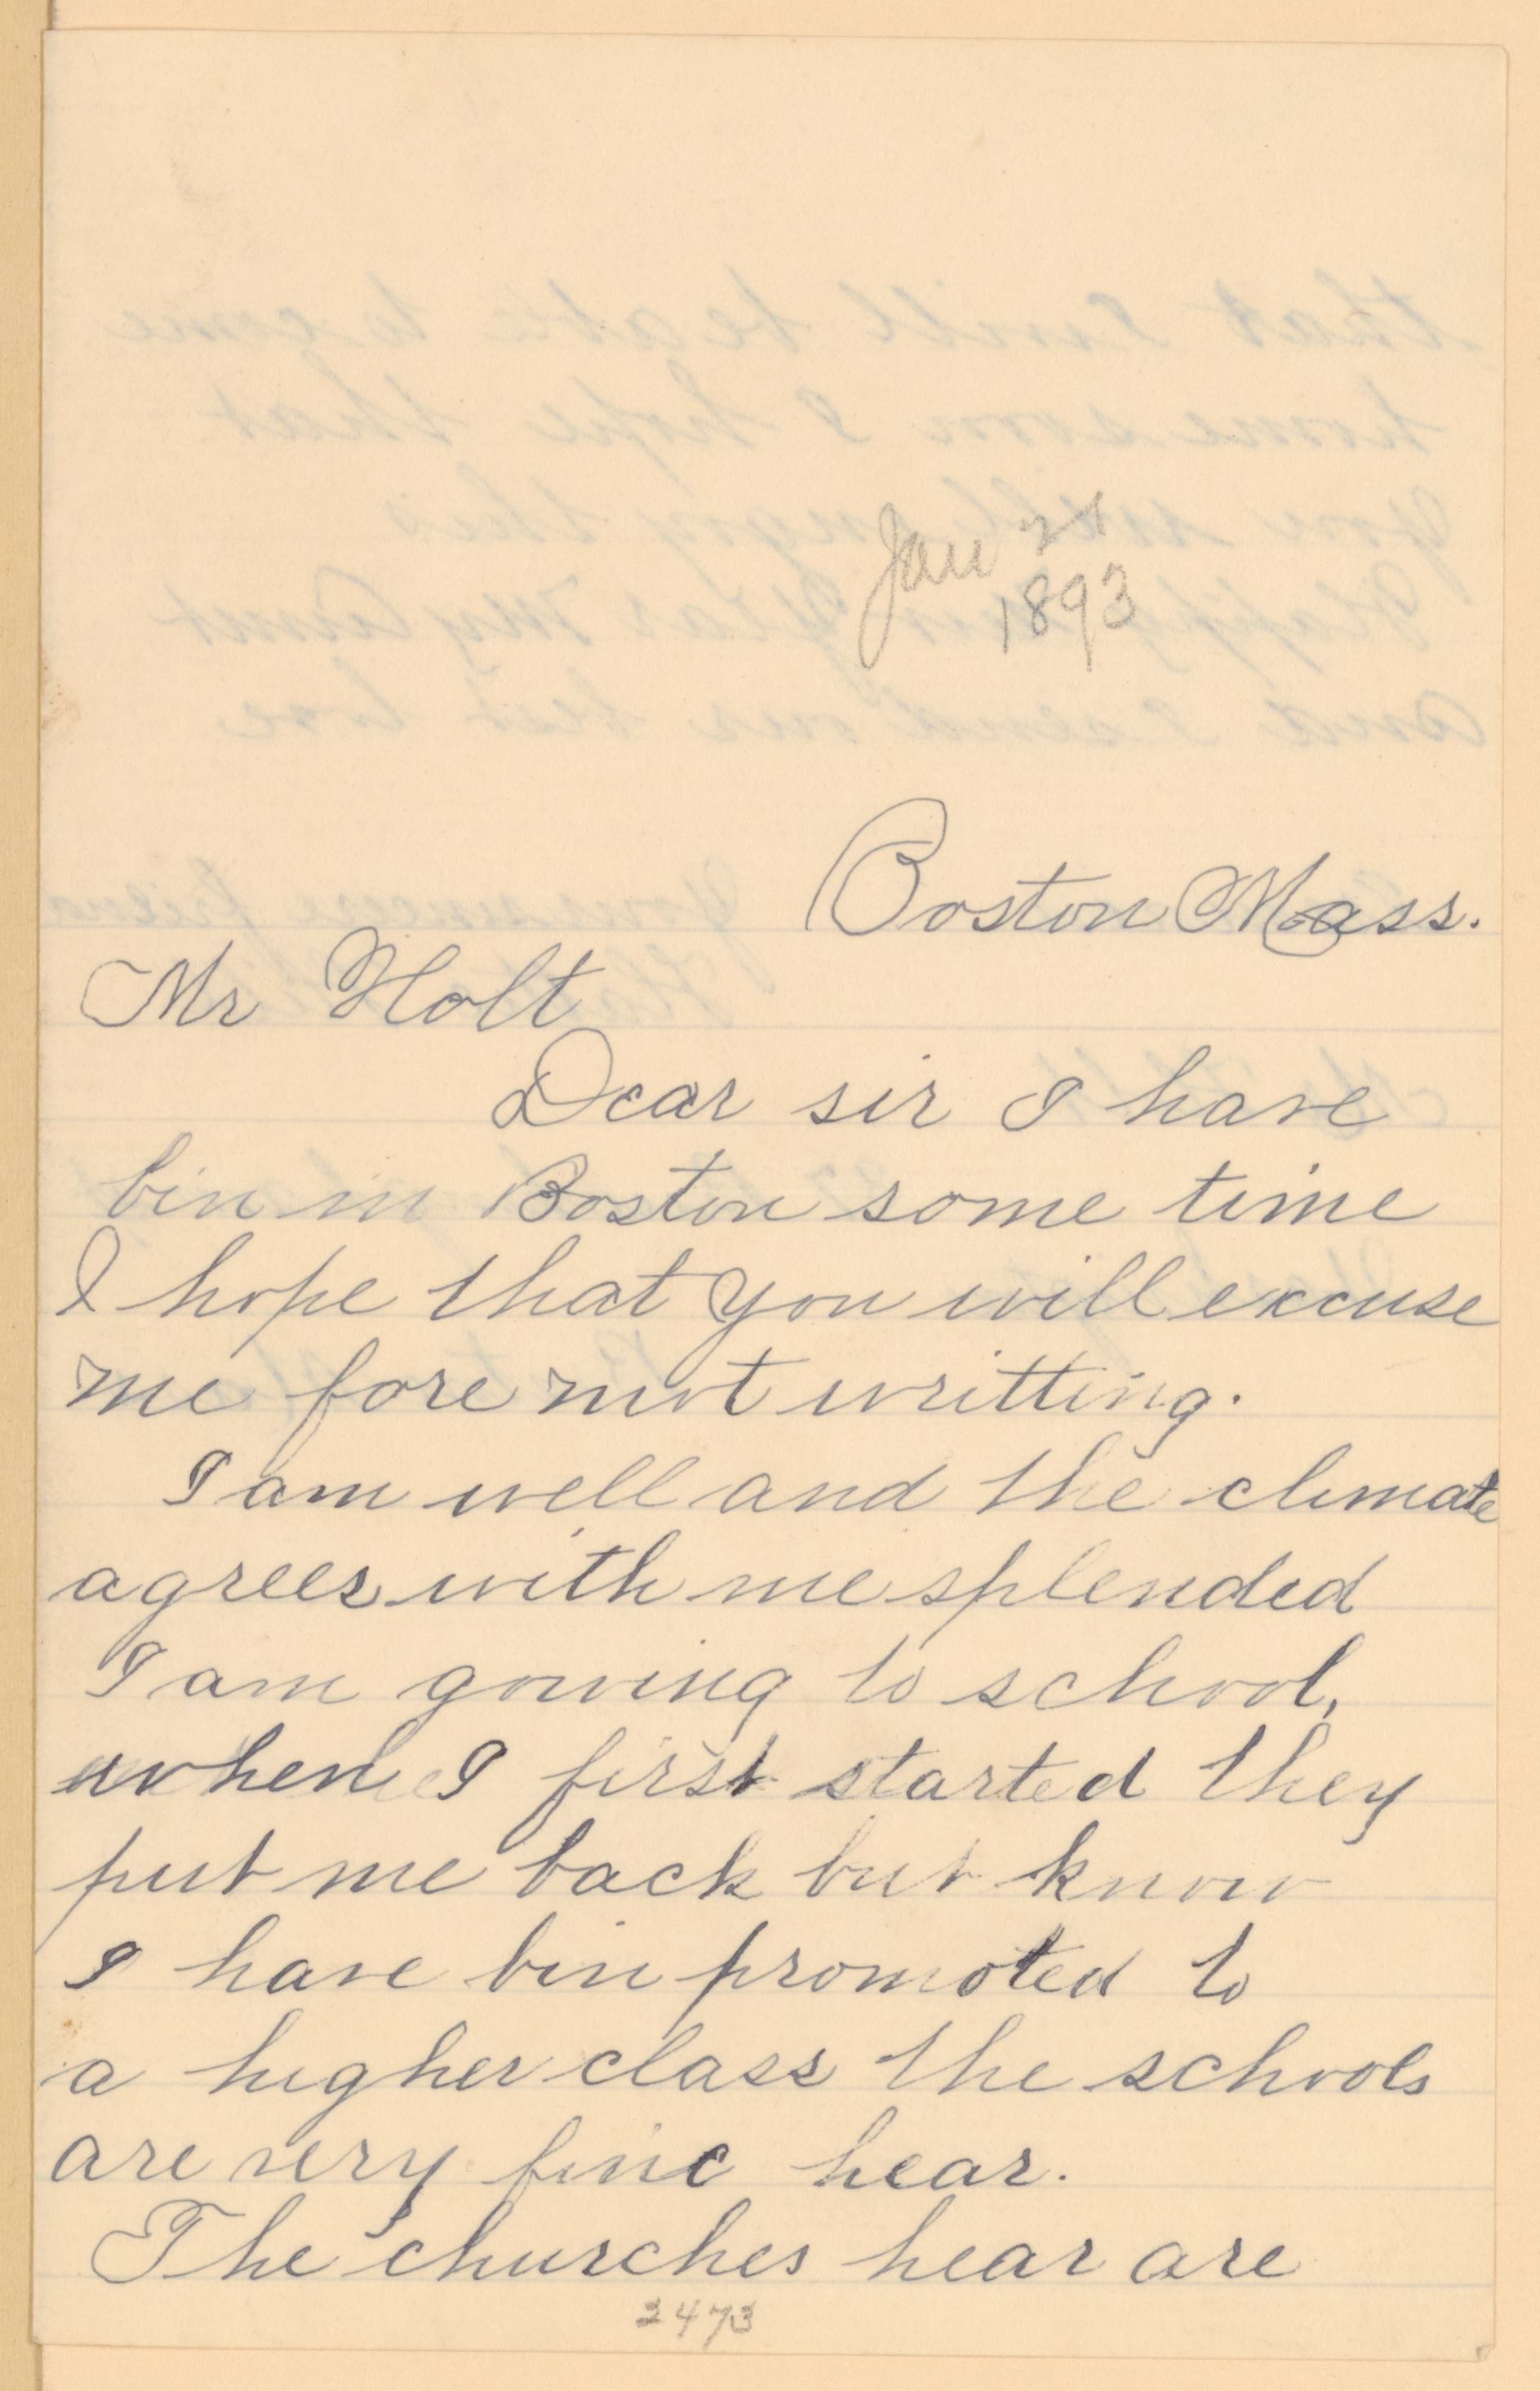 Jan 21
1893
Boston Mass.
Mr Holt
Dear sir I have
bin in Boston some time
I hope that you will excuse
me fore not writting.
I am well and the climate
agrees with me splended
I am gowing to school,
when I first started they
put me back but know
I have bin promoted to
a higher class the schools
are very fine hear.
The churches hear are
2473